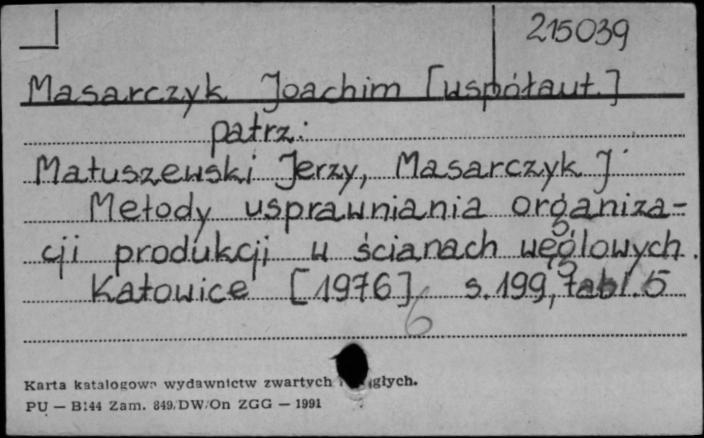 215039
Masarczyk Joachim [współaut.]
patrz:
Matuszewski Jerzy, Masarczyk J
Metody usprawniania organiza-
cji produkcji w ścianach węglowych.
Katowice [1976] s.199, tabl.5
6
Karta katalogowa wydawnictw zwartych i ciągłych.
PU — B144 Zam. 849/DW/On ZGG — 1991